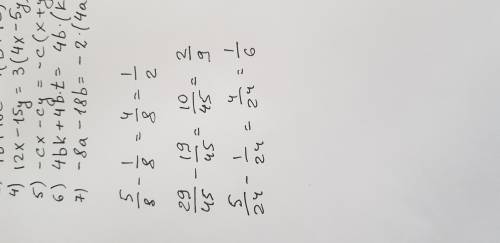 4) 12x - 15y = 3(4x - 5y
5) -cx - cy = -c(x + y
6) 4bk + 4b·t = 4b·(k
7) -8a - 18b = -2·(4a
5/8 - 1/8 = 4/8 = 1/2
29/45 - 19/45 = 10/45 = 2/9
5/24 - 1/24 = 4/24 = 1/6